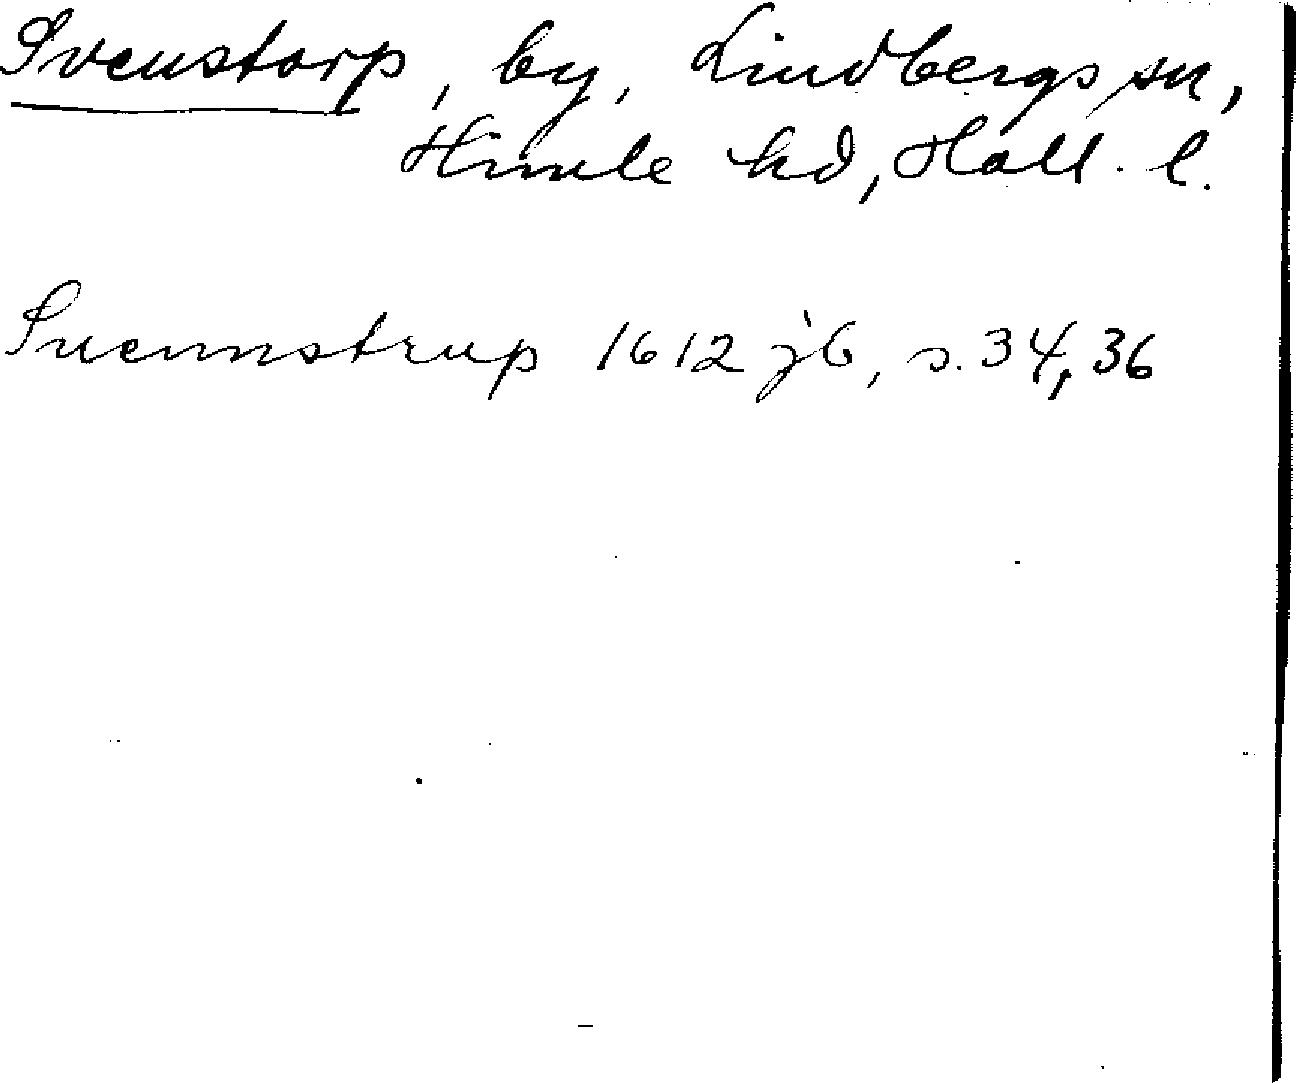 Svenstorp, by, Lindbergs sn,
Himle hd, Hall. l.
Suennstrup 1612 jb, s. 34, 36